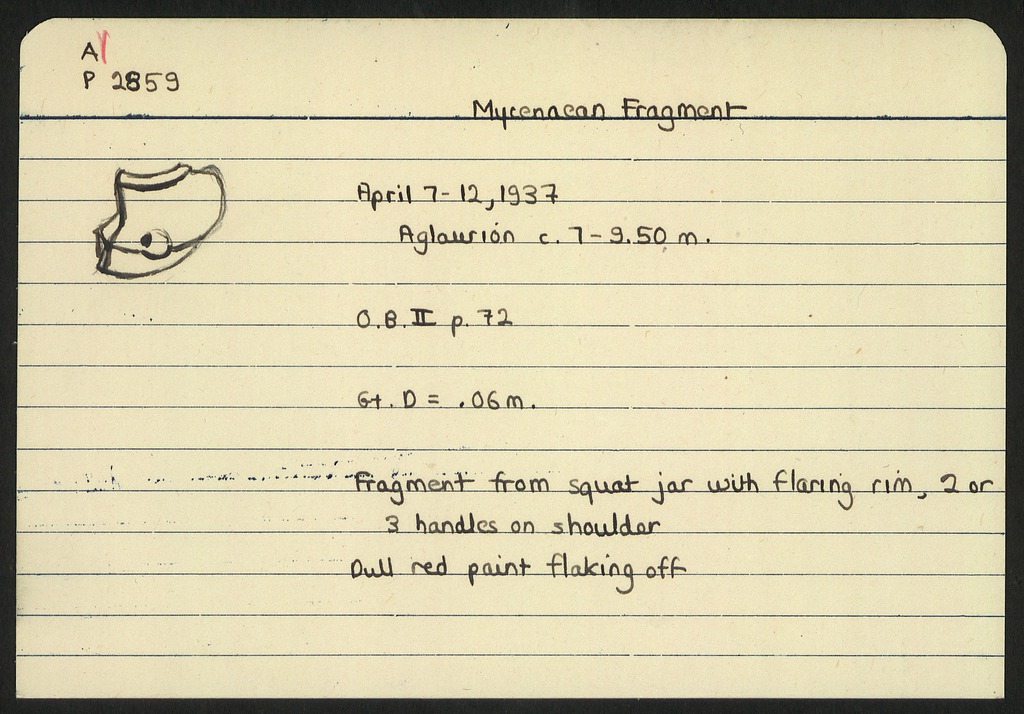 A
P 2859
Mycenaean Fragment
April 7-12, 1937
Aglaurion c. 7-9.50 m.
O.B. II p. 72
Gt. D = .06 m.
Fragment from squat jar with flaring rim, 2 or
3 handles on shoulder
Dull red paint flaking off